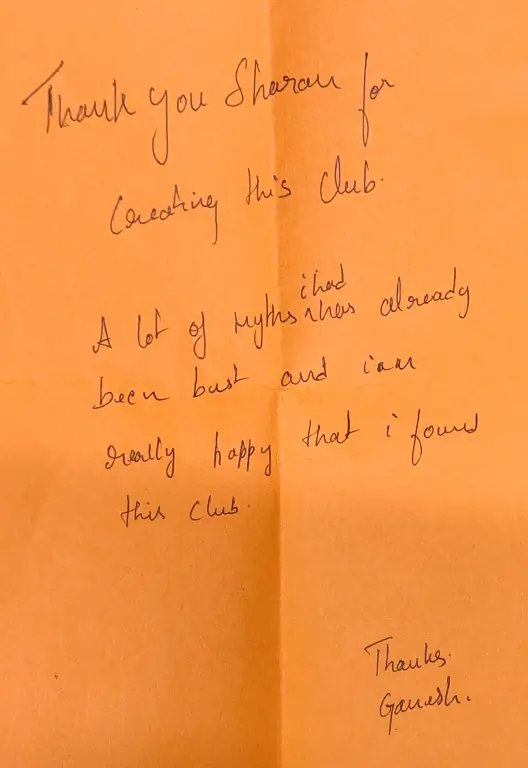 Thank you Sharan for
Creating this Club.
A lot of myths i had has already
been bust and i am
really happy that i found
this Club.
Thanks.
Ganesh.